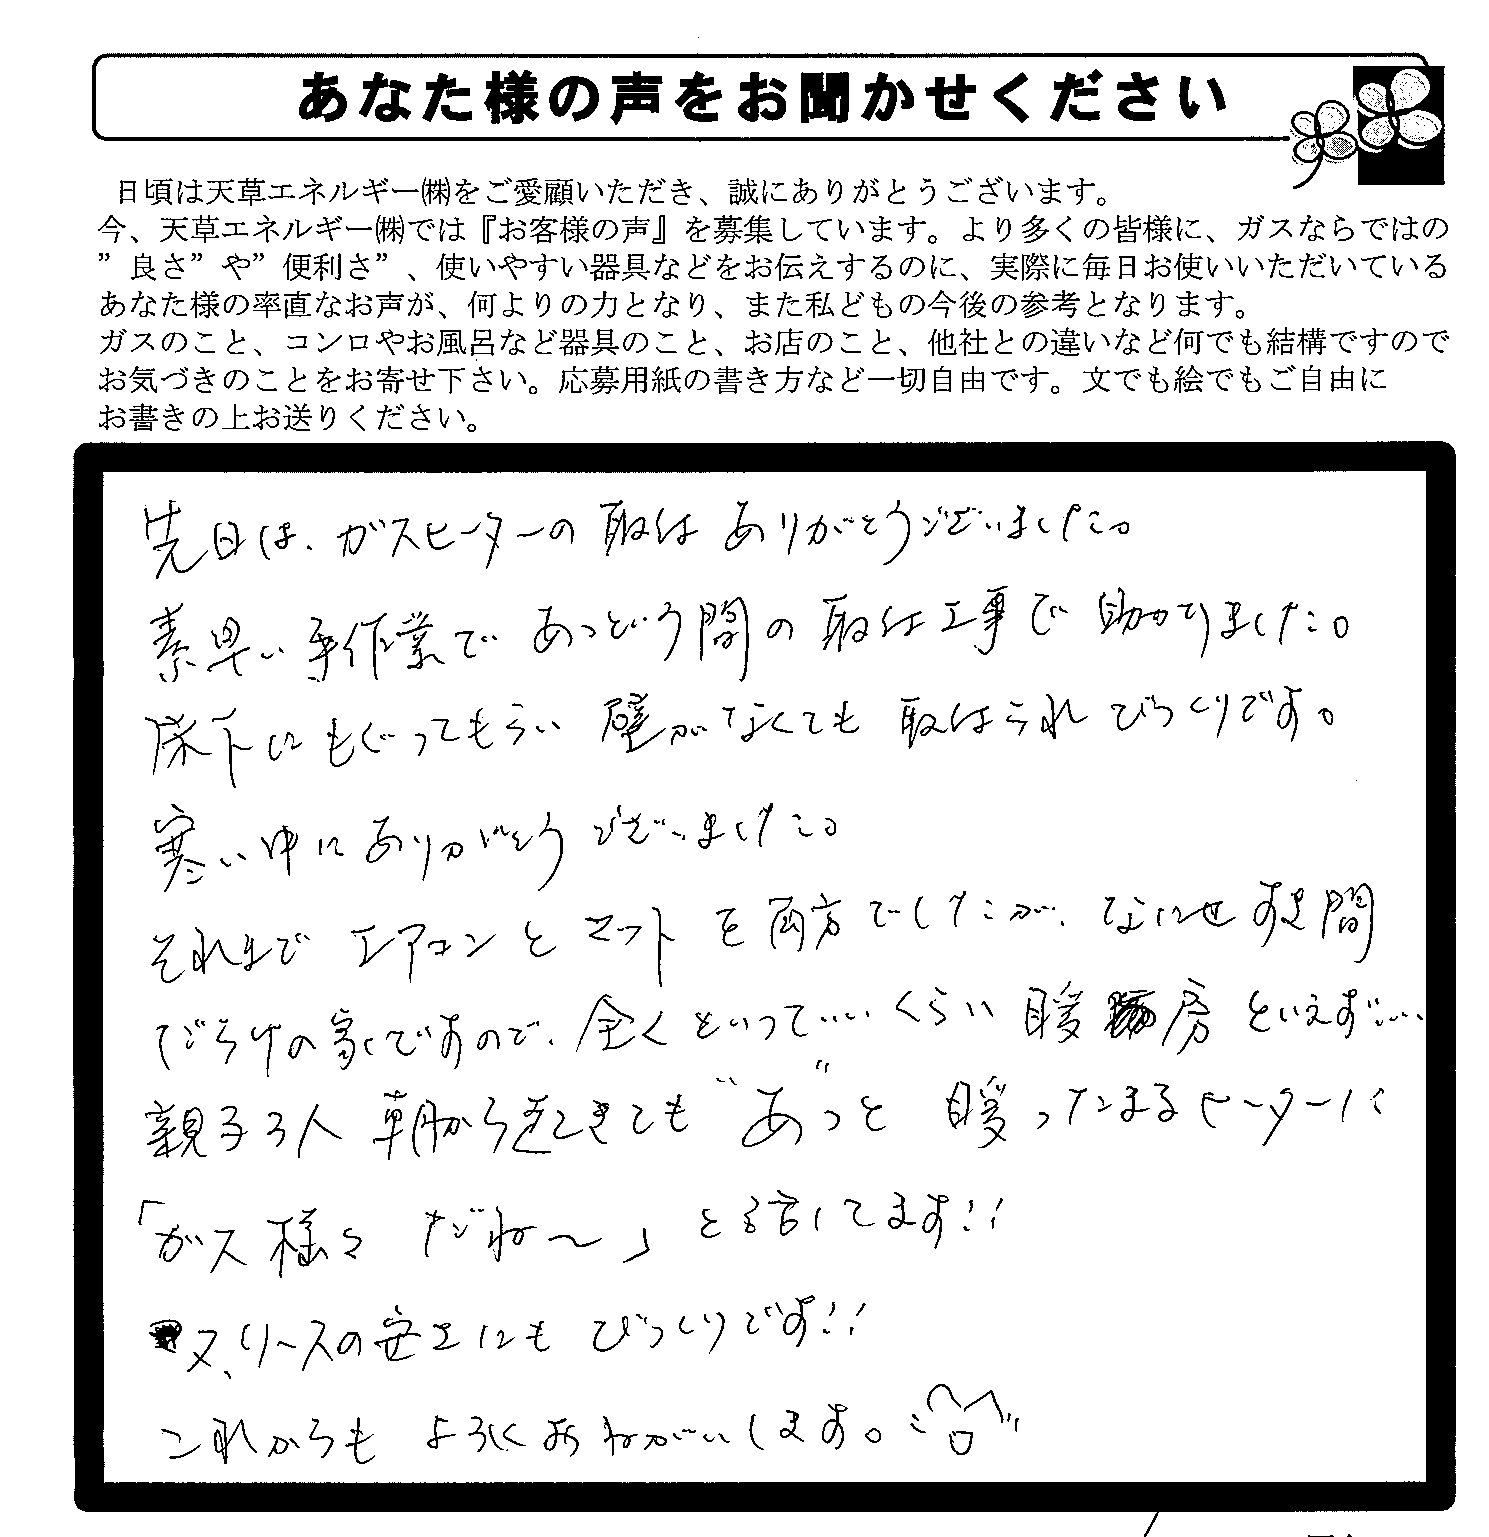 あなた様の声をお聞かせください
日頃は天草エネルギー㈱をご愛顧いただき、誠にありがとうございます。
今、天草エネルギー㈱では『お客様の声』を募集しています。より多くの皆様に、ガスならではの
”良さ”や”便利さ”、使いやすい器具などをお伝えするのに、実際に毎日お使いいただいている
あなた様の率直なお声が、何よりの力となり、また私どもの今後の参考となります。
ガスのこと、コンロやお風呂など器具のこと、お店のこと、他社との違いなど何でも結構ですので
お気づきのことをお寄せ下さい。応募用紙の書き方など一切自由です。文でも絵でもご自由に
お書きの上お送りください。
先日は、ガスヒーターの取付ありがとうございました。
素早い手作業であっという間の取付工事で助かりました。
床下にもぐってもらい壁がなくても取付られびっくりです。
寒い中にありがとうございました。
それまでエアコンとマットを両方でしたが、なにせすき間
だらけの家ですので、全くといっていいくらい暖房といえず…
親子3人朝から起きても“あ”っと暖ったまるヒーターに
「ガス様々だね～」と話してます!!
又、リースの安さにもびっくりです!!
これからもよろしくおねがいします。